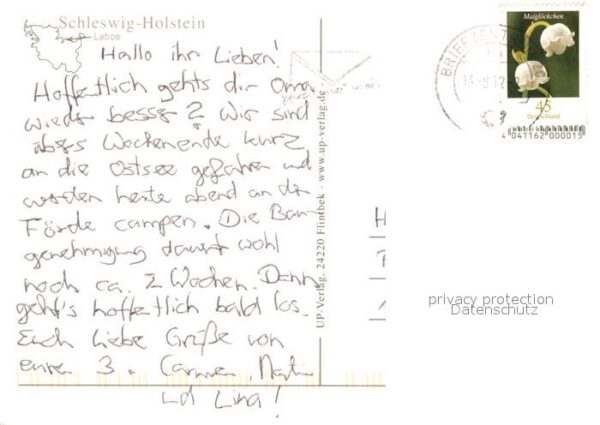 Schleswig-Holstein
Laboe
Hallo ihr Lieben!
Hoffentlich gehts dir Oma
wieder besser? Wir sind
übers Wochenende kurz
an die Ostsee gefahren und
werden heute abend an der
Förde campen. Die Bau-
genehmigung dauert wohl
noch ca. 2 Wochen. Dann
geht's hoffentlich bald los.
Euch liebe Grüße von
euren 3. Carmen, Martin
und Lina!
UP-Verlag, 24220 Flintbek · www.up-verlag.de
BRIEFZENTR
Maiglöckchen
45
Deutschland
4 041162 000015
H
privacy protection
Datenschutz